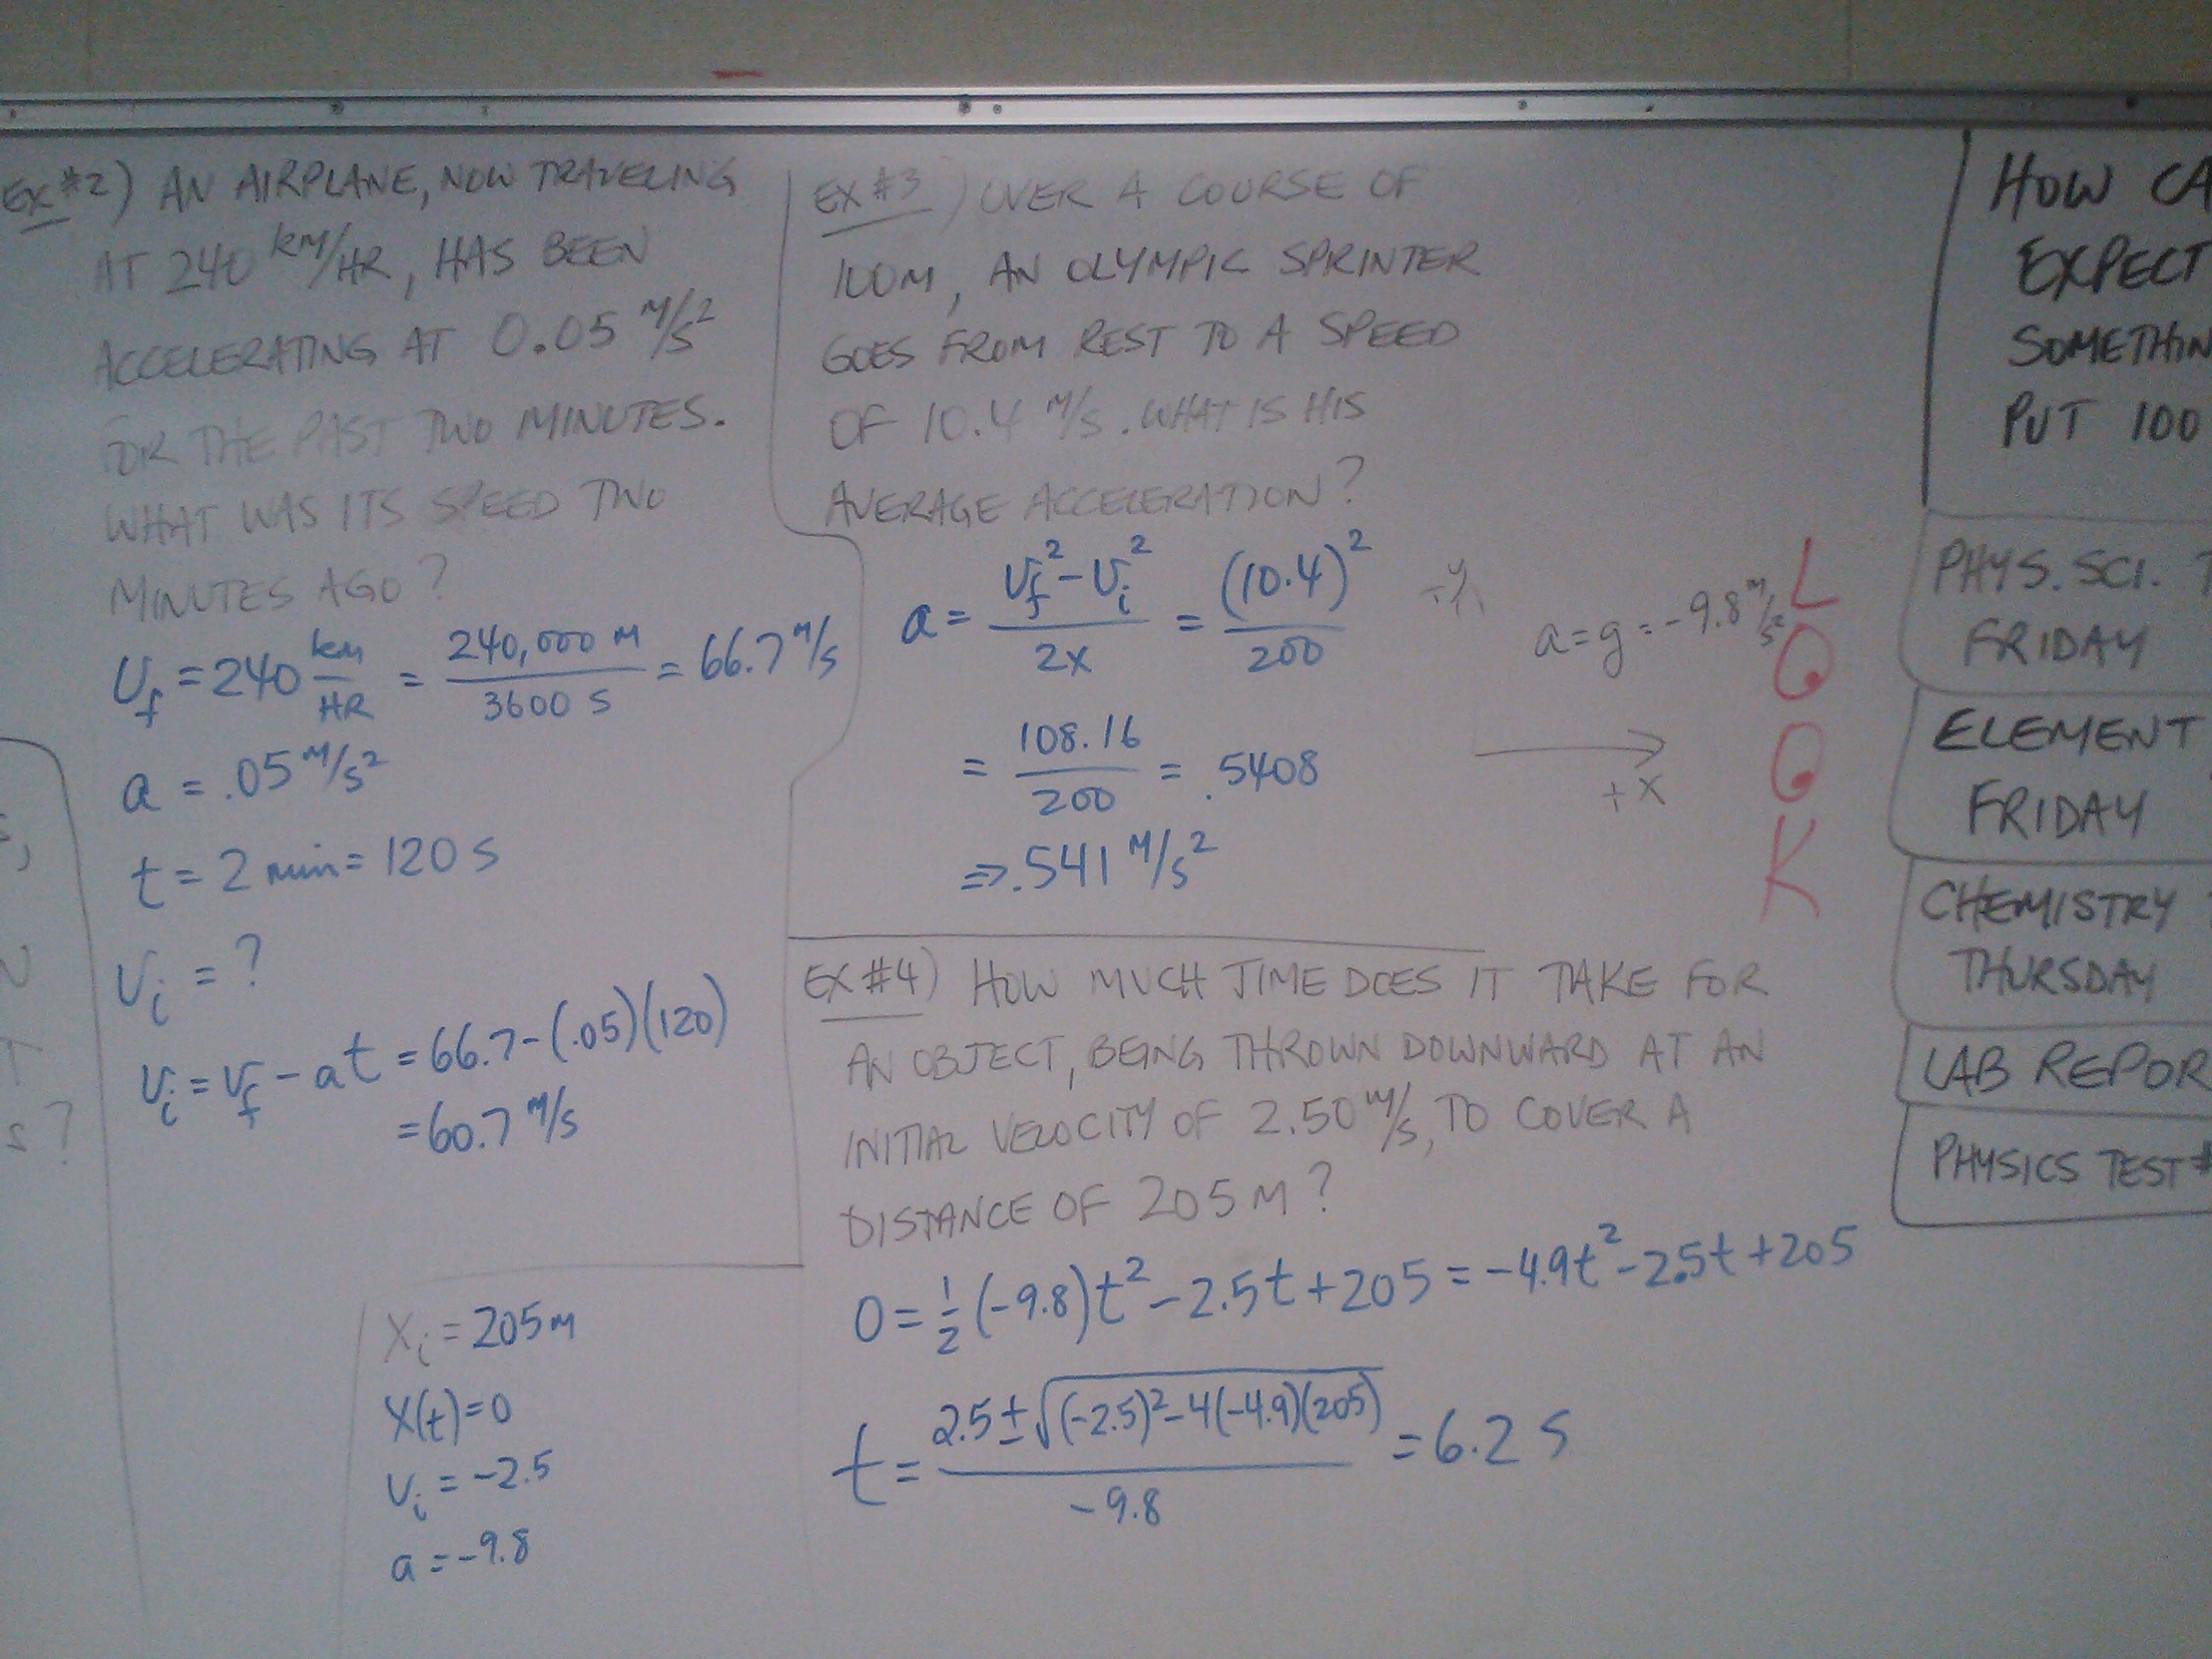 EX #2) AN AIRPLANE, NOW TRAVELING
AT 240 km/HR, HAS BEEN
ACCELERATING AT 0.05 M/S²
FOR THE PAST TWO MINUTES.
WHAT WAS ITS SPEED TWO
MINUTES AGO?
V_f = 240 km/HR = 240,000 M / 3600 S = 66.7 M/S
a = .05 M/S²
t = 2 min = 120 S
V_i = ?
V_i = V_f - at = 66.7 - (.05)(120)
= 60.7 M/S
X_i = 205 M
X(t) = 0
V_i = -2.5
a = -9.8
EX #3) OVER A COURSE OF
100M, AN OLYMPIC SPRINTER
GOES FROM REST TO A SPEED
OF 10.4 M/S. WHAT IS HIS
AVERAGE ACCELERATION?
a = (V_f² - V_i²) / 2X = (10.4)² / 200
= 108.16 / 200 = .5408
⇒ .541 M/S²
a = g = -9.8 M/S²
+X
LOOK
EX #4) HOW MUCH TIME DOES IT TAKE FOR
AN OBJECT, BEING THROWN DOWNWARD AT AN
INITIAL VELOCITY OF 2.50 M/S, TO COVER A
DISTANCE OF 205 M?
0 = 1/2 (-9.8)t² - 2.5t + 205 = -4.9t² - 2.5t + 205
t = (2.5 ± √((-2.5)² - 4(-4.9)(205))) / -9.8 = 6.2 S
HOW CA
EXPECT
SOMETHIN
PUT 100
PHYS. SCI. T
FRIDAY
ELEMENT
FRIDAY
CHEMISTRY
THURSDAY
LAB REPOR
PHYSICS TEST #
S,
N
T
S?